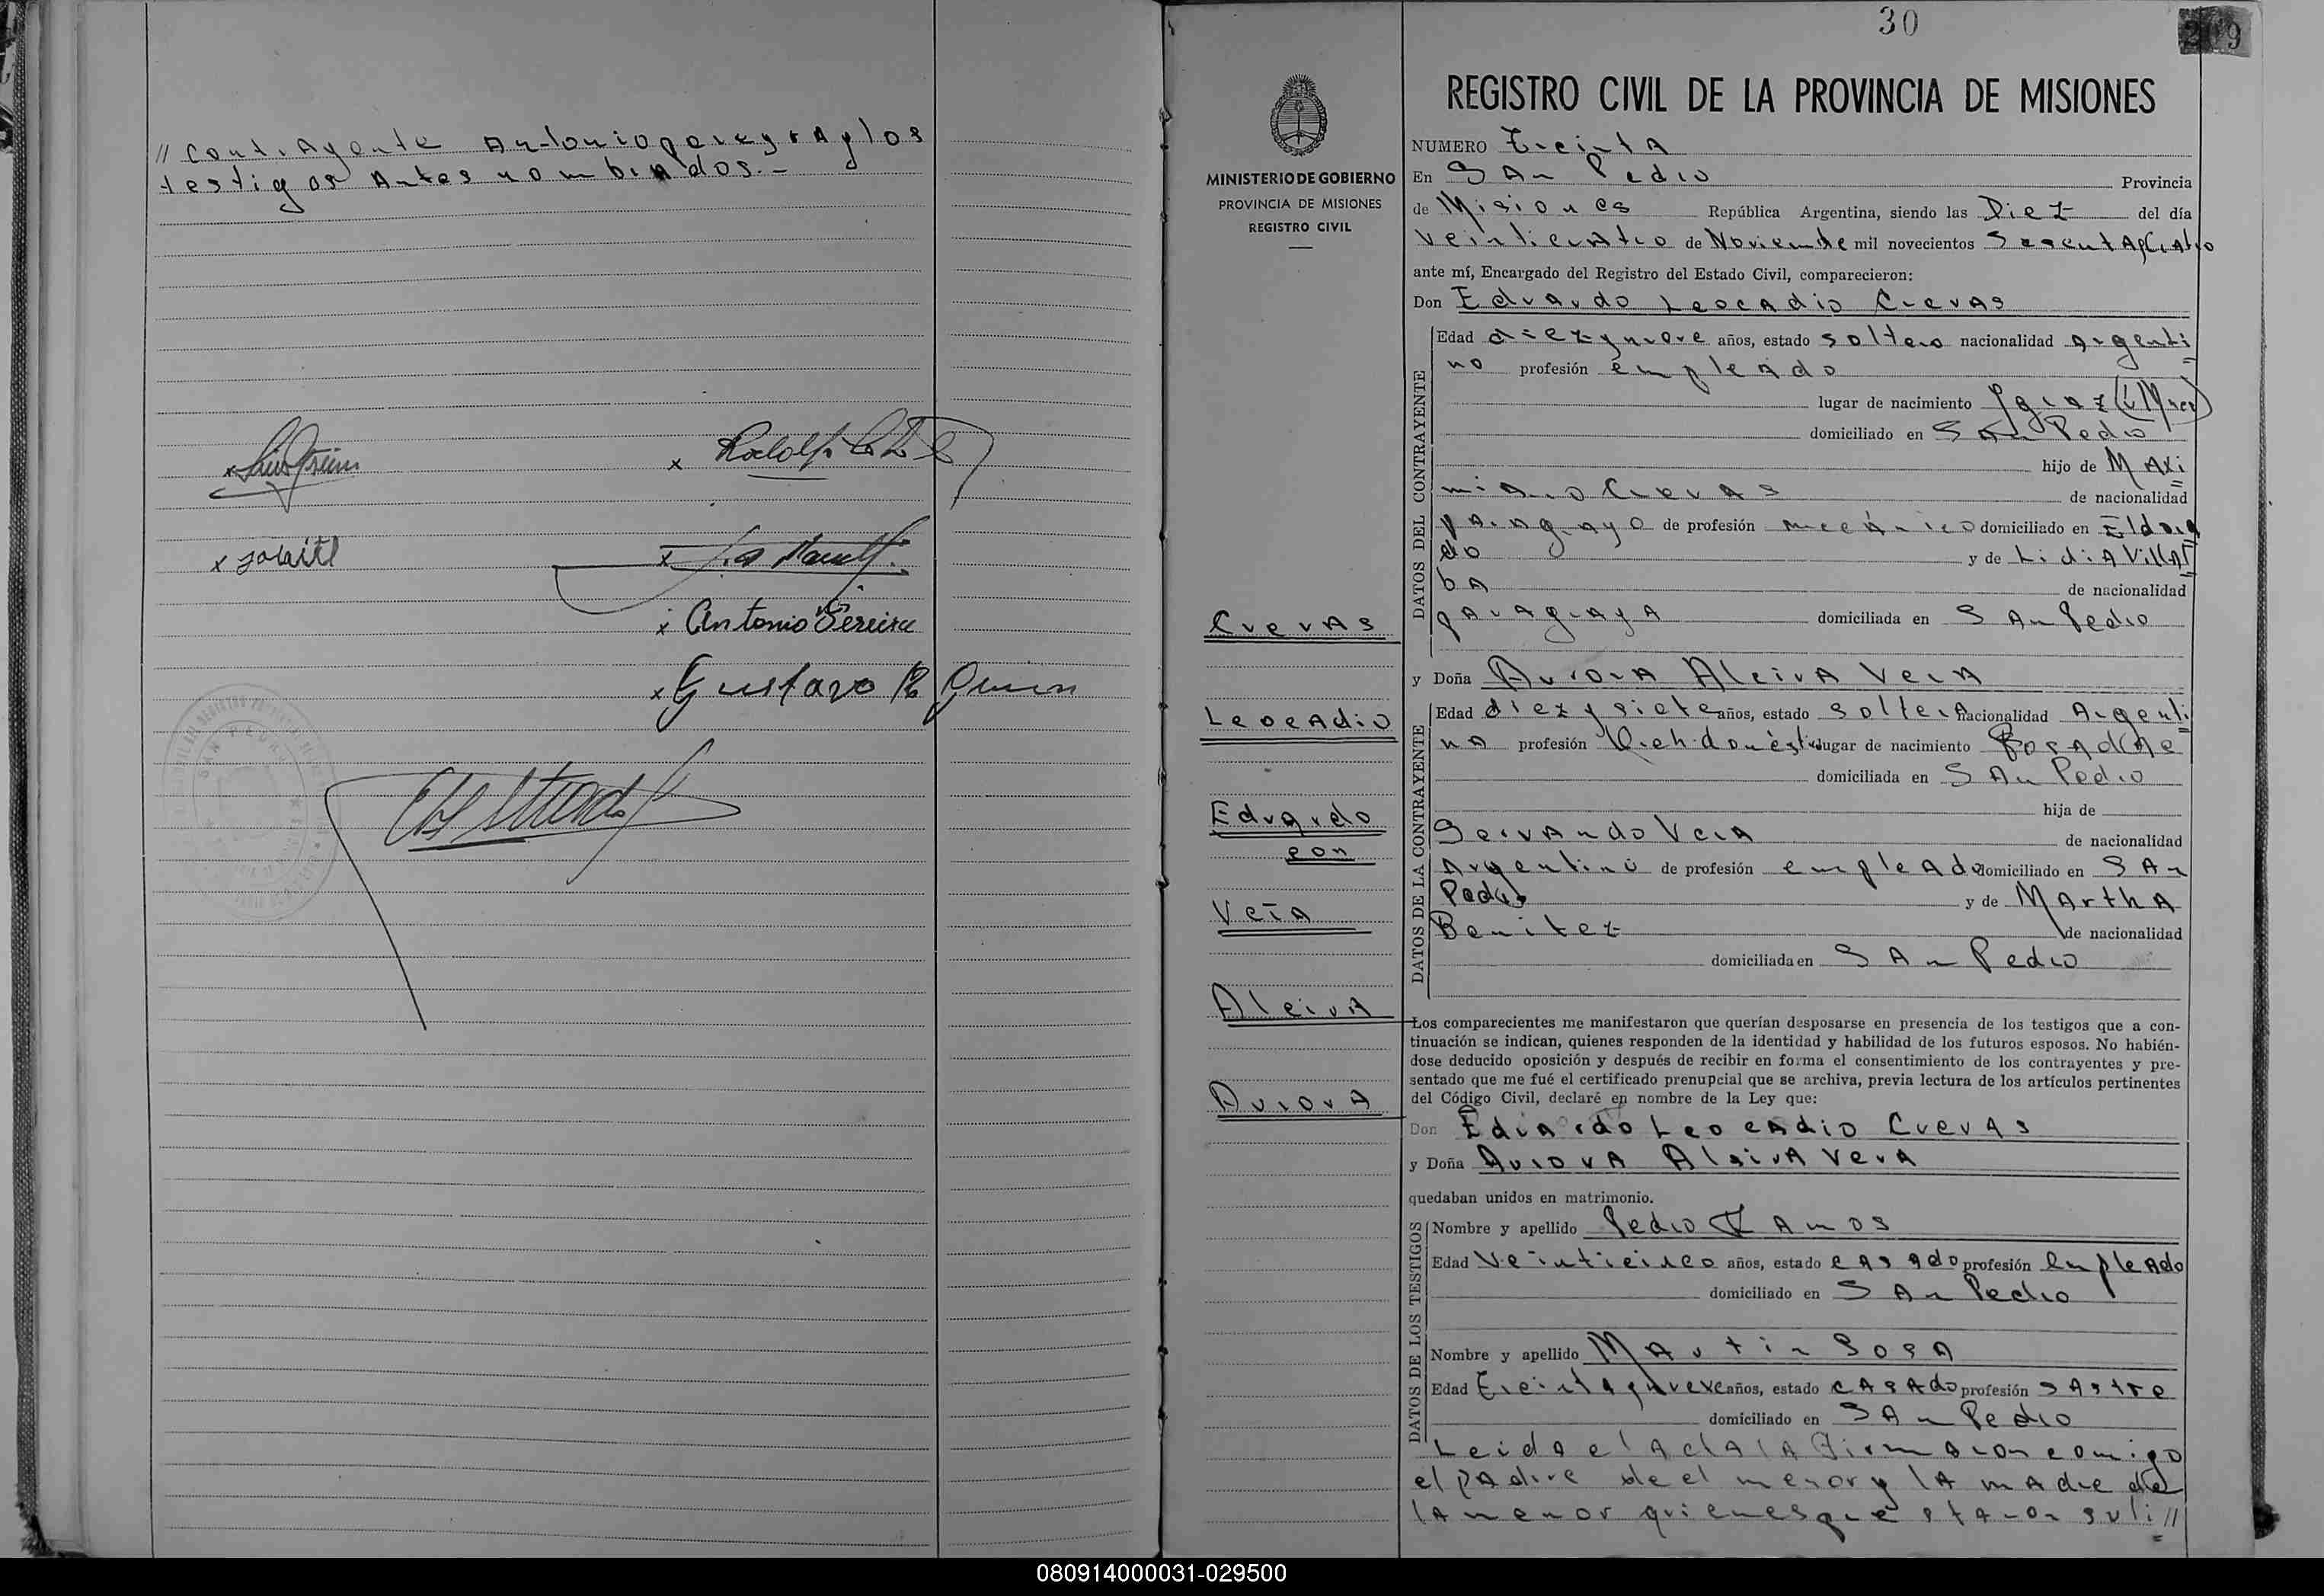 // Contrayente Antonio pereyra y los
testigos Antes nombrados.-
x
x Rodolfo
x
x
x Antonio Pereira
x Gustavo R
SAN PEDRO
30
209
REGISTRO CIVIL DE LA PROVINCIA DE MISIONES
MINISTERIO DE GOBIERNO
PROVINCIA DE MISIONES
REGISTRO CIVIL
NUMERO Treinta
En SAn Pedro Provincia
de Misiones República Argentina, siendo las Diez del día
veinticuatro de Noviembre mil novecientos
ante mí, Encargado del Registro del Estado Civil, comparecieron:
Don Eduardo Leocadio Cuevas
DATOS DEL CONTRAYENTE
Edad diez y nueve años, estado soltero nacionalidad Argenti
no profesión empleado
lugar de nacimiento
domiciliado en SAn Pedro
hijo de MAxi
miano Cuevas de nacionalidad
paraguayo de profesión mecánico domiciliado en Eldora
do y de LidiA VillAl
bA de nacionalidad
paraguaya domiciliada en SAn Pedro
Cuevas
Leocadio
Eduardo
con
Vera
Alciva
Aurora
y Doña Aurora Alciva Vera
DATOS DE LA CONTRAYENTE
Edad diez y siete años, estado soltera nacionalidad Argenti
na profesión Queh. domést. lugar de nacimiento Posadas
domiciliada en SAn Pedro
hija de
Servando Vera de nacionalidad
Argentino de profesión empleado domiciliado en SAn
Pedro y de MArthA
Benitez de nacionalidad
domiciliada en SAn Pedro
Los comparecientes me manifestaron que querían desposarse en presencia de los testigos que a con-
tinuación se indican, quienes responden de la identidad y habilidad de los futuros esposos. No habién-
dose deducido oposición y después de recibir en forma el consentimiento de los contrayentes y pre-
sentado que me fué el certificado prenupcial que se archiva, previa lectura de los artículos pertinentes
del Código Civil, declaré en nombre de la Ley que:
Don Eduardo Leocadio Cuevas
y Doña Aurora Alciva Vera
quedaban unidos en matrimonio.
DATOS DE LOS TESTIGOS
Nombre y apellido Pedro Ramos
Edad Veinticinco años, estado casado profesión Empleado
domiciliado en SAn Pedro
Nombre y apellido Martin Sosa
Edad Treinta y nueve años, estado casado profesión sastre
domiciliado en SAn Pedro
Leida el Acta la Firmaron comigo
el padre de el menor y la madre de
la menor quienes que
080914000031-029500